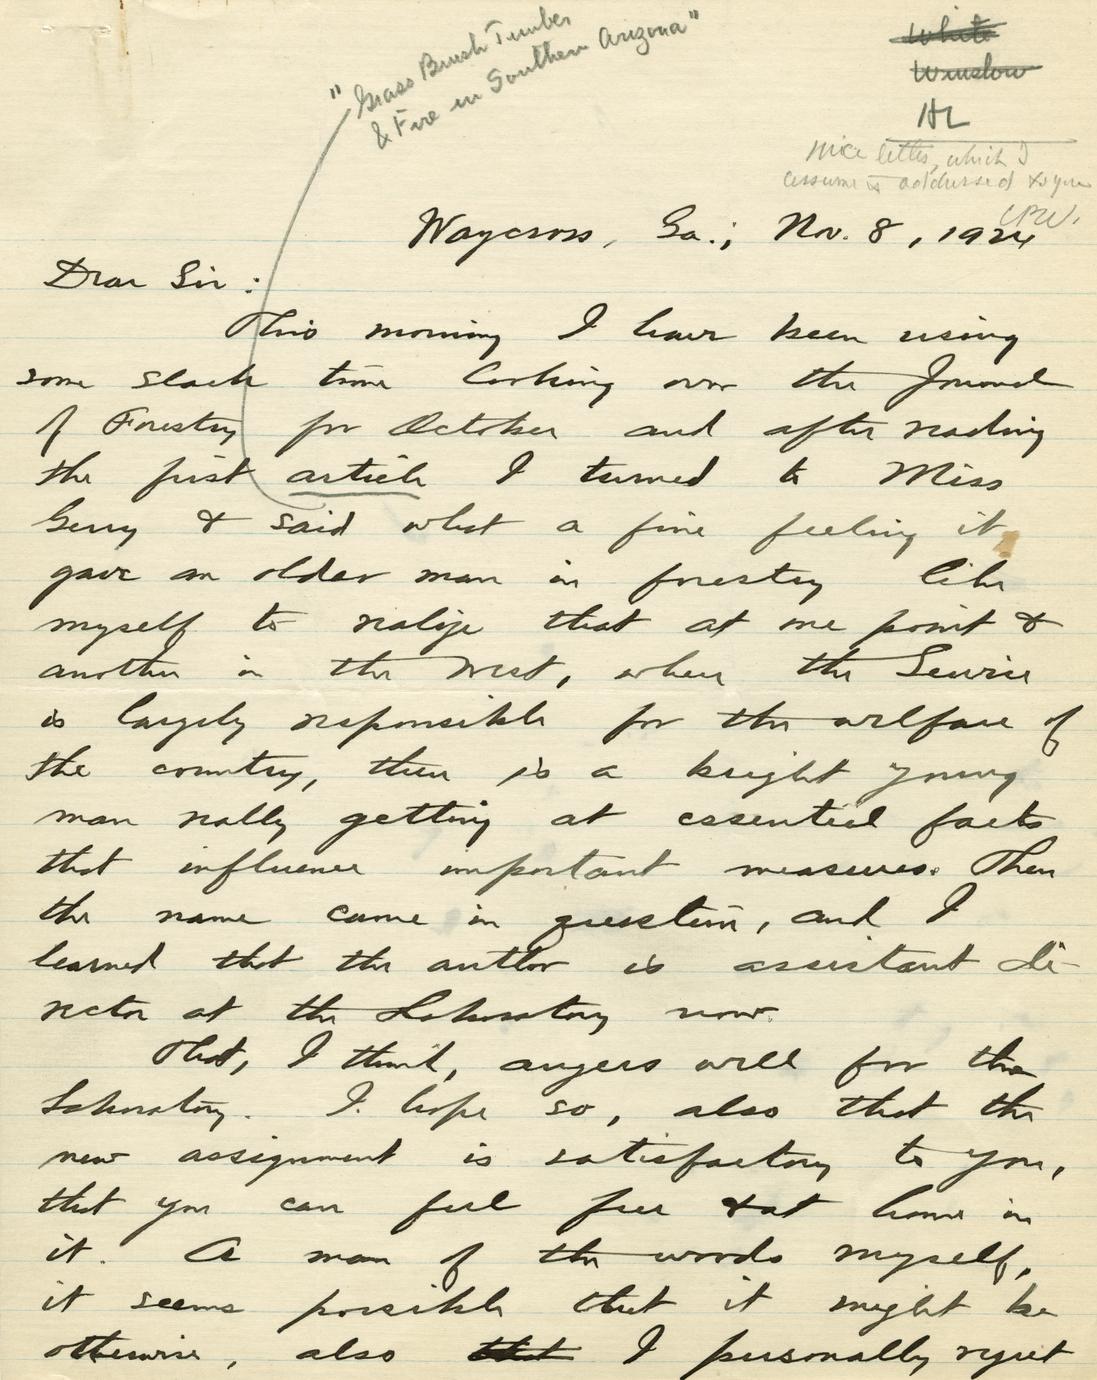 "Grass Brush Timber
& Fire in Southern Arizona"
White
Winslow
AL
Nice letter, which I
assume is addressed to you
CPW.
Waycross, Ga.; Nov. 8, 1924
Dear Sir:
This morning I have been using
some slack time looking over the Journal
of Forestry for October and after reading
the first article I turned to Miss
Gerry & said what a fine feeling it
gave an older man in forestry like
myself to realize that at one point &
another in the West, where the Service
is largely responsible for the welfare of
the country, there is a bright young
man really getting at essential facts
that influence important measures. Then
the name came in question, and I
learned that the author is assistant di-
rector at the Laboratory now.
That, I think, augers well for the
Laboratory. I hope so, also that the
new assignment is satisfactory to you,
that you can feel free & at home in
it. A man of the woods myself,
it seems possible that it might be
otherwise, also that I personally regret